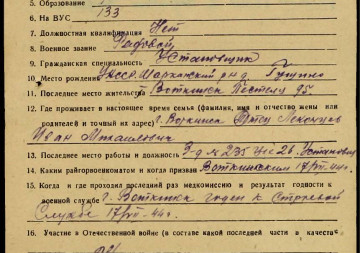 5. Образование
6. На ВУС 133
7. Должностная квалификация Нет
8. Военное звание Рядовой
9. Гражданская специальность Установщик
10. Место рождения УАССР. Шарканский р-н д.
11. Последнее место жительства Воткинск 95
12. Где проживает в настоящее время семья (фамилия, имя и отчество жены или
родителей и точный их адрес) г. Воткинск Отец
Иван Михайлович
13. Последнее место работы и должность З-д № 235 цех 26. Установщик
14. Каким райгорвоенкоматом и когда призван Воткинским 17/VII-44г.
15. Когда и где проходил последний раз медкомиссию и результат годности к
военной службе г. Воткинск годен к Строевой
Службе 17/VII-44г.
16. Участие в Отечественной войне (в составе какой последней части в качестве